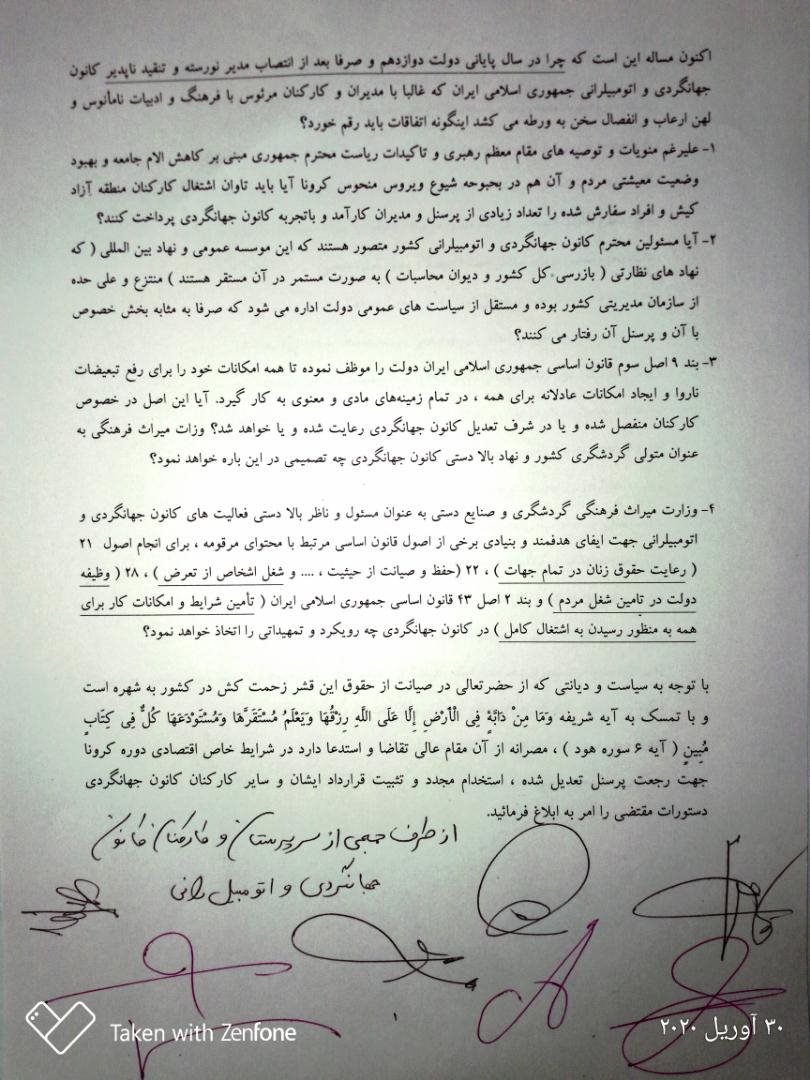 اکنون مساله این است که چرا در سال پایانی دولت دوازدهم و صرفا بعد از انتصاب مدیر نورسته و تنقید ناپدیر کانون
جهانگردی و اتومبیلرانی جمهوری اسلامی ایران که غالبا با مدیران و کارکنان مرئوس با فرهنگ و ادبیات نامأنوس و
لهن ارعاب و انفصال سخن به ورطه می کشد اینگونه اتفاقات باید رقم خورد؟
۱- علیرغم منویات و توصیه های مقام معظم رهبری و تاکیدات ریاست محترم جمهوری مبنی بر کاهش الام جامعه و بهبود
وضعیت معیشتی مردم و آن هم در بحبوحه شیوع ویروس منحوس کرونا آیا باید تاوان اشتغال کارکنان منطقه آزاد
کیش و افراد سفارش شده را تعداد زیادی از پرسنل و مدیران کارآمد و باتجربه کانون جهانگردی پرداخت کنند؟
۲- آیا مسئولین محترم کانون جهانگردی و اتومبیلرانی کشور متصور هستند که این موسسه عمومی و نهاد بین المللی ( که
نهاد های نظارتی ( بازرسی کل کشور و دیوان محاسبات ) به صورت مستمر در آن مستقر هستند ) منتزع و علی حده
از سازمان مدیریتی کشور بوده و مستقل از سیاست های عمومی دولت اداره می شود که صرفا به مثابه بخش خصوص
با آن و پرسنل آن رفتار می کنند؟
۳- بند ۹ اصل سوم قانون اساسی جمهوری اسلامی ایران دولت را موظف نموده تا همه امکانات خود را برای رفع تبعیضات
ناروا و ایجاد امکانات عادلانه برای همه ، در تمام زمینه‌های مادی و معنوی به کار گیرد. آیا این اصل در خصوص
کارکنان منفصل شده و یا در شرف تعدیل کانون جهانگردی رعایت شده و یا خواهد شد؟ وزات میراث فرهنگی به
عنوان متولی گردشگری کشور و نهاد بالا دستی کانون جهانگردی چه تصمیمی در این باره خواهد نمود؟
۴- وزارت میراث فرهنگی گردشگری و صنایع دستی به عنوان مسئول و ناظر بالا دستی فعالیت های کانون جهانگردی و
اتومبیلرانی جهت ایفای هدفمند و بنیادی برخی از اصول قانون اساسی مرتبط با محتوای مرقومه ، برای انجام اصول ۲۱
( رعایت حقوق زنان در تمام جهات ) ، ۲۲ (حفظ و صیانت از حیثیت ، .... و شغل اشخاص از تعرض ) ، ۲۸ ( وظیفه
دولت در تامین شغل مردم ) و بند ۲ اصل ۴۳ قانون اساسی جمهوری اسلامی ایران ( تأمین شرایط و امکانات کار برای
همه به منظور رسیدن به اشتغال کامل ) در کانون جهانگردی چه رویکرد و تمهیداتی را اتخاذ خواهد نمود؟
با توجه به سیاست و دیانتی که از حضرتعالی در صیانت از حقوق این قشر زحمت کش در کشور به شهره است
و با تمسک به آیه شریفه وَمَا مِنْ دَابَّةٍ فِی الْأَرْضِ إِلَّا عَلَى اللَّهِ رِزْقُهَا وَیَعْلَمُ مُسْتَقَرَّهَا وَمُسْتَوْدَعَهَا کُلٌّ فِی کِتَابٍ
مُبِینٍ ( آیه ۶ سوره هود ) ، مصرانه از آن مقام عالی تقاضا و استدعا دارد در شرایط خاص اقتصادی دوره کرونا
جهت رجعت پرسنل تعدیل شده ، استخدام مجدد و تثبیت قرارداد ایشان و سایر کارکنان کانون جهانگردی
دستورات مقتضی را امر به ابلاغ فرمائید.
از طرف جمعی از سرپرستان و کارکنان کانون
جهانگردی و اتومبیل رانی
Taken with Zenfone
۳۰ آوریل ۲۰۲۰